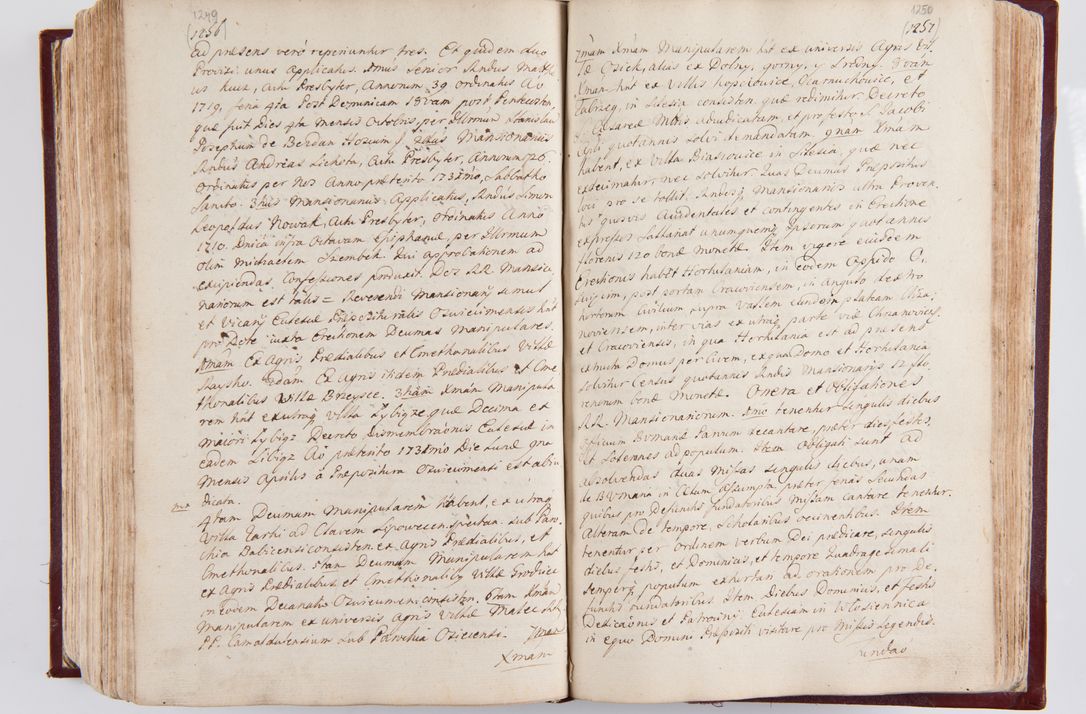 1249
(1256)
ad præsens verò reperiuntur tres. Et quidem duo
Provisi: unus Applicatus. Imus Senior Andus Matthæ
us Kuix, Actu Presbyter, Annorum 39 ordinatus Aō
1719, feria 4ta Post Dominicam 18vam post Pentecosten,
quæ fuit Dies 4ta Mensis Octobris, per Illrmum Stanislaum
Josephum de Bezdan Hosium. 2dus Mansionarius
Andus Andreas Lichota, Actu Presbyter, Annorum 26.
Ordinatus per Nos Anno præterito 1731mo, Sabbatho
Sancto. 3tius Mansionarius Applicatus, Andus Simon
Leopoldus Nowak, Actu Presbyter, Ordinatus Anno
1710. Dnica infra Octavam Epiphaniæ, per Illrmum
olim Michaelem Szembek. Qui approbationem ad
excipiendas Confessiones produxit. Dos RR. Mansio
nariorum est talis = Reverendi Mansionarÿ simul
et Vicarÿ Ecclesiæ Præpositurales Oswiecimensis hnt
pro Dote iuxta Erectionem Decimas Manipulares.
Imam Ex Agris Prædialibus et Cmethonalibus Villæ
Stawsko. 2dam Ex agris itidem Prædialibus et Cme
thonalibus Villæ Brzescze. 3tiam Xmam Manipula
rem hnt ex utraq Villa Lybiąże quæ Decima ex
maiori Lybiąż Decreto Dismembraõnis Ecclesiæ in
eadem Libiąż Aō præterito 1731mo Die Lunæ 9na
Mensis Aprilis à Præpositura Oswiecimensi est abiu
dicata.
4tam Decimam Manipularem habent, ex utraq
Villa Żarki ad Clavem Lipowiecen. spectan. sub Paro
chia Babicensi consisten. ex Agris Prædialibus, et
Cmethonalibus. 5tam Decimam Manipularem hnt
ex Agris Prædialibus et Cmethonalibus Villæ Grodziec
in eodem Decanatu Oswiecimen. consisten. 6tam Xmam
Manipularem ex universis agris Villæ Malec
PP. Camaldulensium sub Parochia Osiecensi. 7mam
Xmam
1250
(1257)
7mam Xmam Manipularem hnt ex universis Agris Vil
læ Osiek, alias ex Dolny, gorny, y Sredny. 8vam
Xmam hnt ex Villis Kopciowice, Charnuchowice, et
Zabrzeg, in Silesia consisten. quæ redimitur. Decreto
Cæsareæ Mttis adiudicatam, et pro festo S. Jacobi
Apli quotannis solvi demandatam. 9nam Xmam
habent, ex Villa Biassowice in Silesia, quæ nec
extrahitur, nec solvitur. Quas Decimas Præpositus
loci pro se tollit. Andis Mansionarijs ultra Proven
tus quosvis Accidentales et contingentes in Erectione
expressos Sallariat unumquemq Ipsorum quotannis
florenis 120 bonæ Monetæ. Item vigore eiusdem
Erectionis habent Hortulaniam, in eodem Oppido O
swięcim, post portam Cracoviensem, in angulo dextro
hortorum Civilium supra Vallem eundem plateam
noviensem, inter vias ex utraq parte viæ Chrzanoviens.
et Cracoviensis, in qua Hortulania est ad præsens
extructa Domus per Civem, ex qua Domo et Hortulania
solvitur Census quotannis Andis Mansionarijs 52 flo
renorum bonæ Monetæ. Onera et Obligationes
RR. Mansionariorum. Imo tenentur singulis diebus
Officium Romanæ Parvum decantare, præter dies festos
et Solennes ad populum. Item Obligati sunt ad
absolvendas duas Missas singulis diebus, unam
de BVMaria in Cælum Assumpta præter ferias Secundas
quibus pro Defunctis fundatoribus Missam Cantare tenentur.
Alteram de tempore, Scholaribus decinentibus. Item
tenentur per Ordinem Verbum Dei prædicare, singulis
diebus festis, et Dominicis, et tempore Quadragesimali
semper q populum exhortari ad orationem pro De
functis fundatoribus. Item Diebus Dominicis, et festis
Dedicaõnis et Patrocinÿ. Ecclesiam in Wlosiennica
in equo Domini Præpositi visitare pro Missis Legendis.
undas